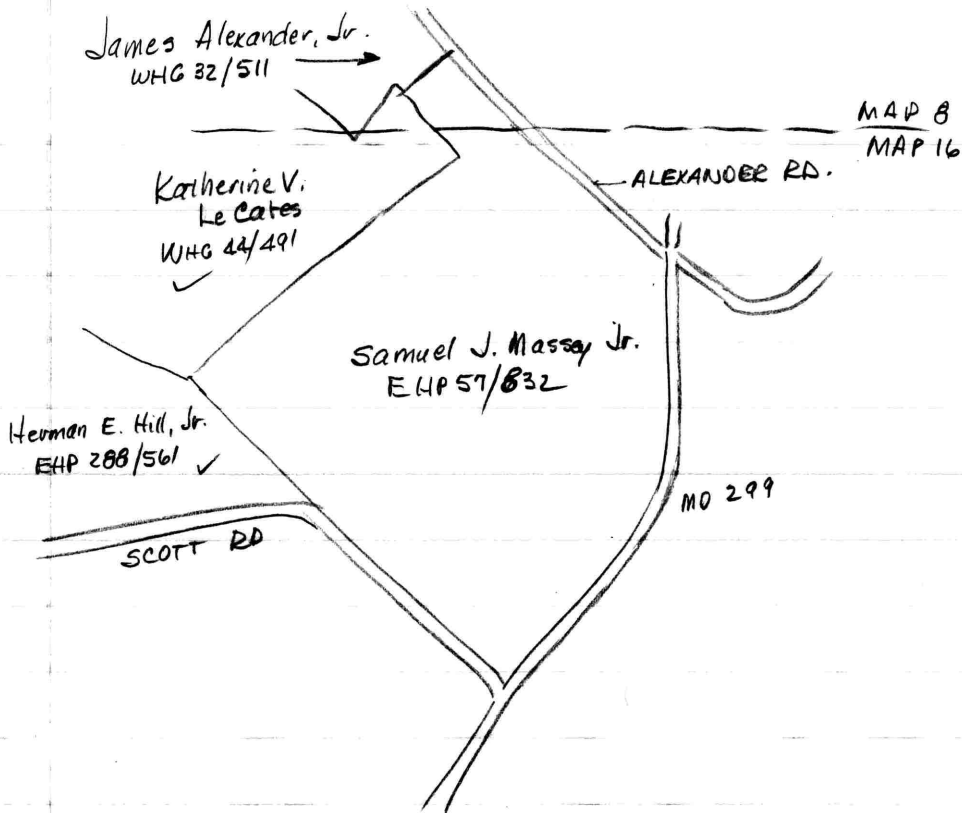 James Alexander, Jr.
WHG 32/511
MAP 8
MAP 16
ALEXANDER RD.
Katherine V.
Le Cates
WHG 44/491
Samuel J. Massey Jr.
EHP 57/832
Herman E. Hill, Jr.
EHP 288/561
MD 299
SCOTT RD